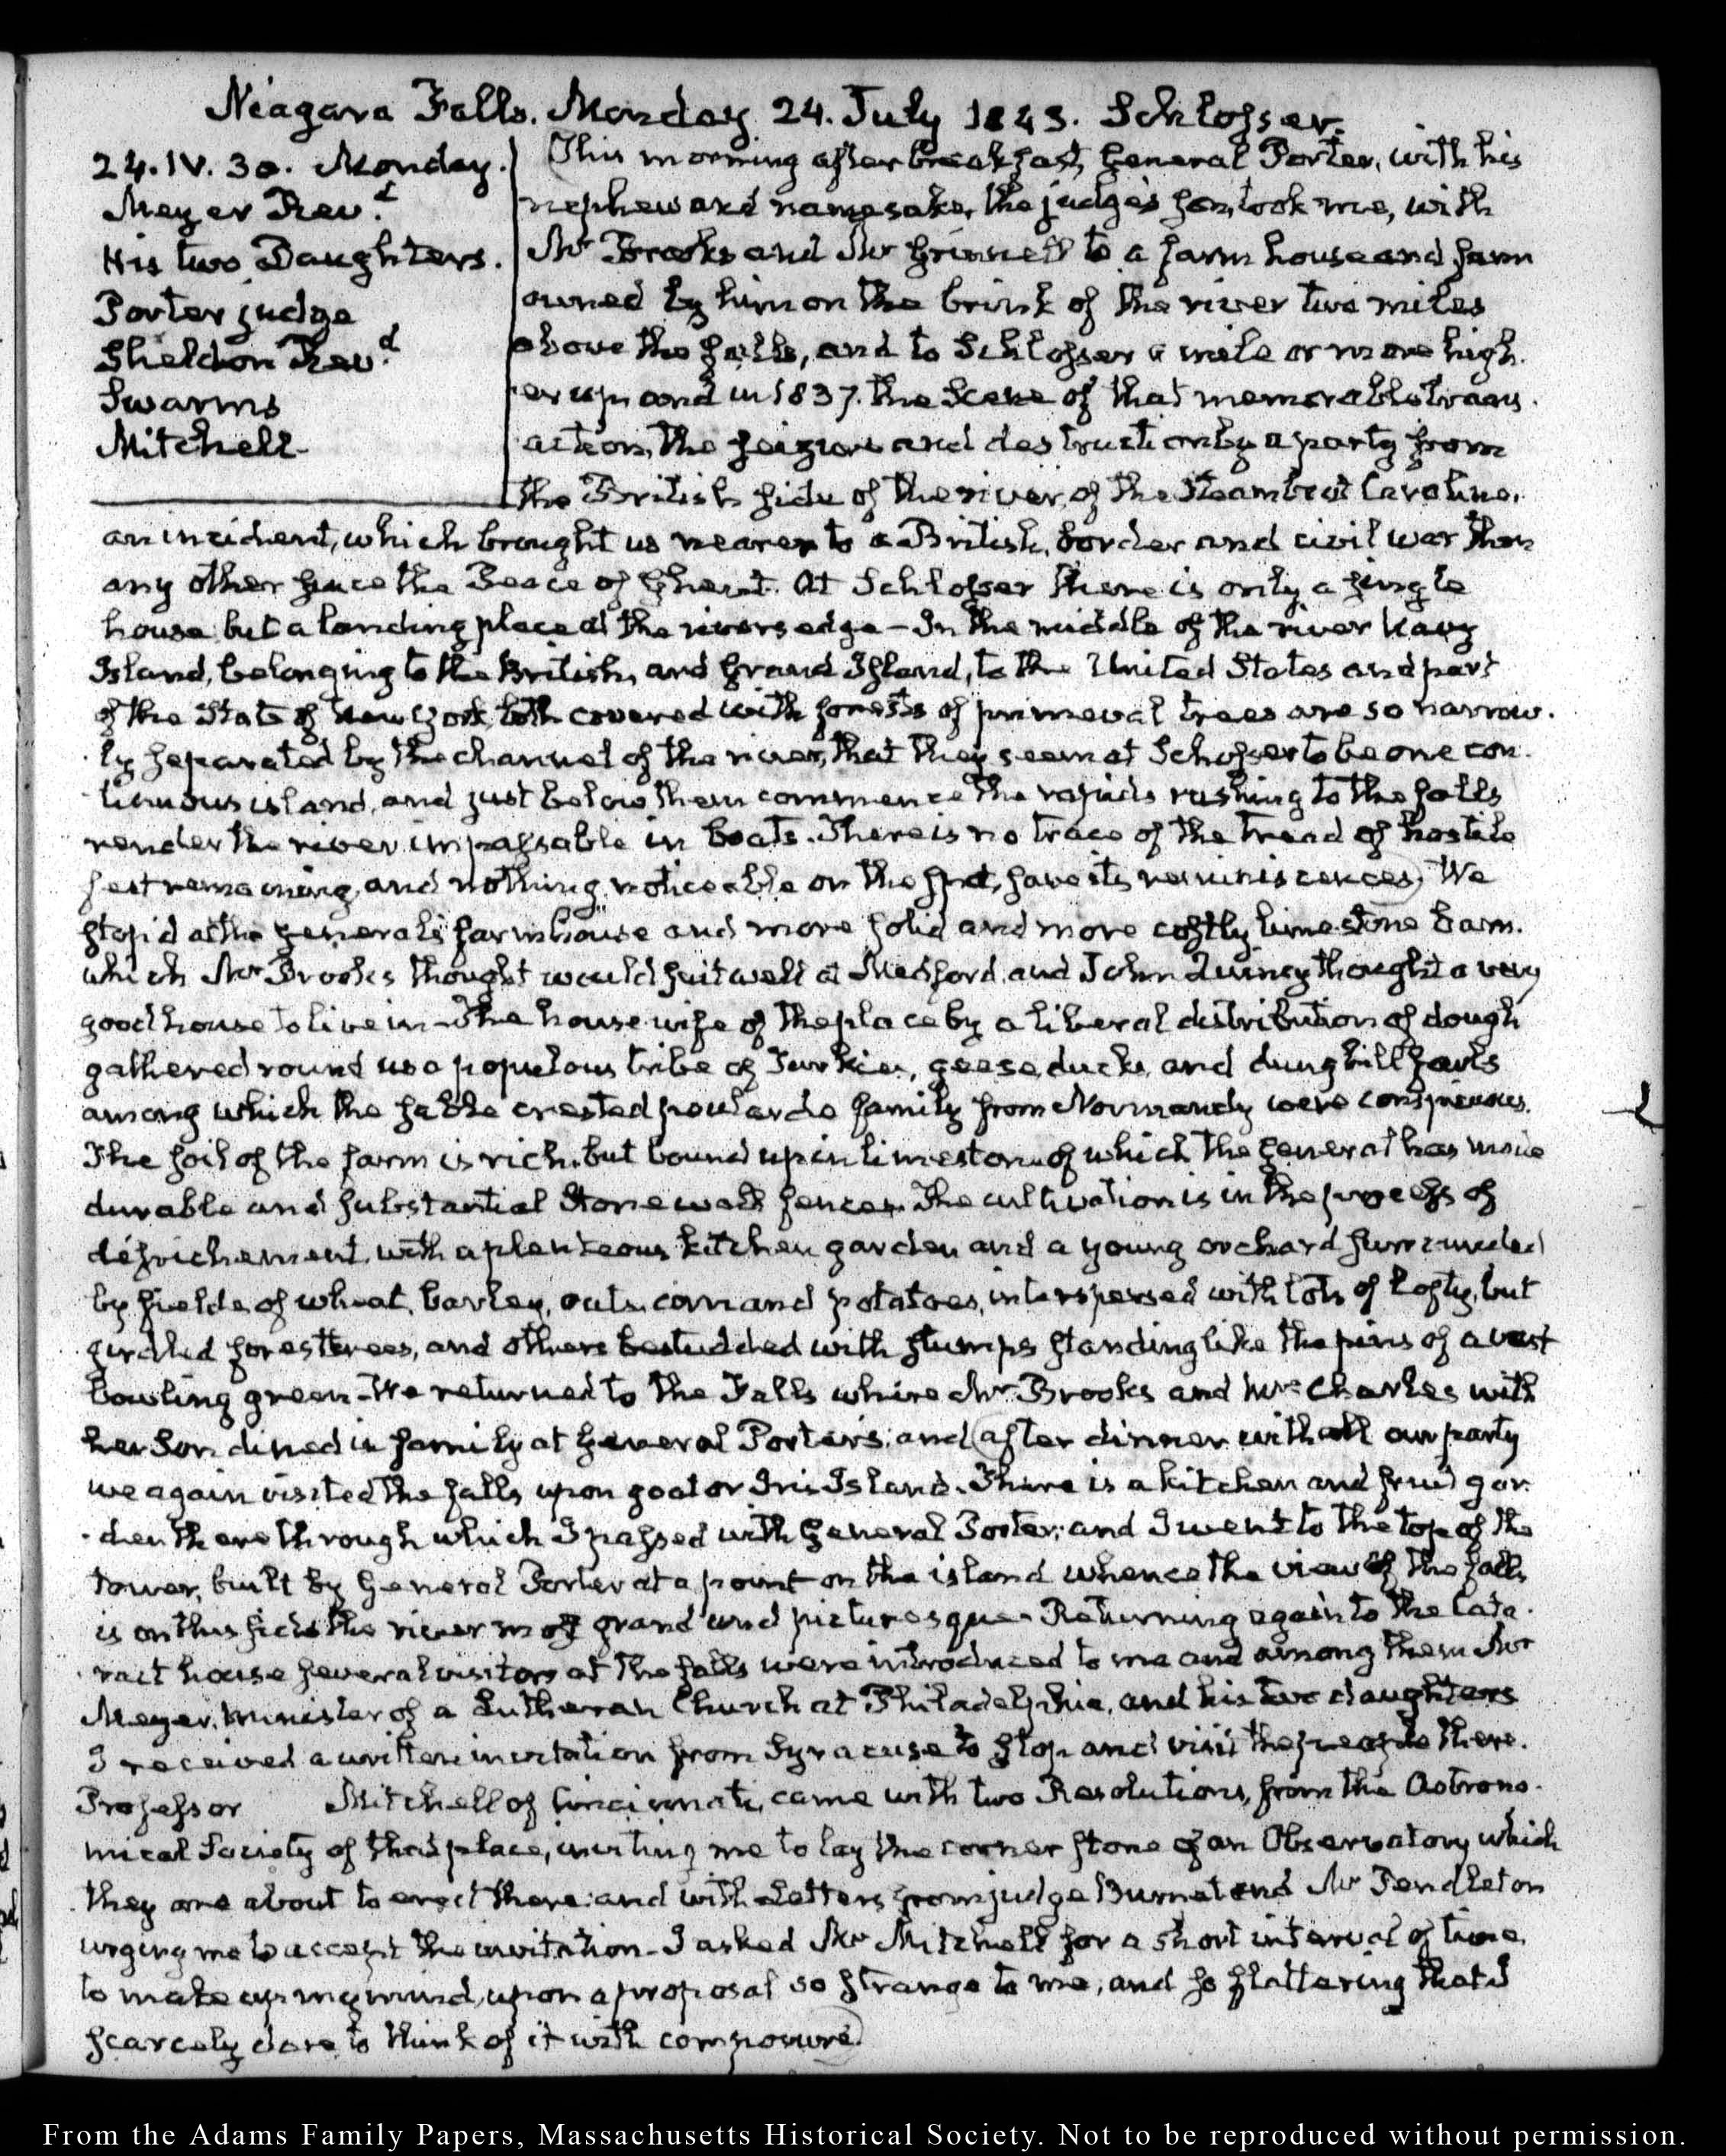 Niagara Falls. Monday 24. July 1843. Schlosser.
24. IV. 30. Monday.
Meyer Revd.
His two Daughters.
Porter judge
Sheldon Revd.
Swarms
Mitchell
This morning after breakfast, General Porter, with his
nephew and namesake, the judge's son, took me, with
Mr Brooks and Mr Grinnell to a farm house and farm
owned by him on the brink of the river two miles
above the falls, and to Schlosser a mile or more high
er up and in 1837. the Scene of that memorable trans
action, the seizure and destruction by a party from
the British side of the river, of the Steamboat Caroline,
an incident, which brought us nearer to a British, border and civil war than
any other since the Peace of Ghent. At Schlosser there is only a single
house but a landing place at the rivers edge – In the middle of the river Navy
Island, belonging to the British, and Grand Island, to the United States and part
of the State of New York, both covered with forests of primeval trees are so narrow
ly separated by the channel of the river, that they seem at Schosser to be one con
tinuous island, and just below them commence the rapids rushing to the falls
render the river impassable in boats. There is no trace of the tread of hostile
feet remaining, and nothing noticeable on the spot, save its reminiscences. We
stop'd at the General's farmhouse and more solid and more costly limestone barn.
which Mr Brooks thought would suit well at Medford, and John Quincy thought a very
good house to live in – The housewife of the place by a liberal distribution of dough
gathered round us a populous tribe of Turkies, geese, ducks, and dunghill fowls
among which the sable crested poularde family from Normandy were conspicuous.
The soil of the farm is rich, but bound up in limestone of which the General has made
durable and substantial Stone wall fences. The cultivation is in the process of
défrichement, with a plenteous kitchen garden and a young orchard surrounded
by fields of wheat, barley, oats, corn and potatoes, interspersed with lots of lofty, but
girdled forest trees, and others bestudded with stumps standing like the pins of a vast
bowling green – We returned to the Falls where Mr Brooks and Mrs Charles with
her Son dined in family at General Porter's, and after dinner with all our party
we again visited the falls upon goat or Iris Island. There is a kitchen and fruit gar
den there through which I passed with General Porter; and I went to the top of the
tower, built by General Porter at a point on the island whence the view of the falls
is on this side the river most grand and picturesque – Returning again to the Cata
ract house several visitors at the falls were introduced to me and among them Mr
Meyer, minister of a Lutheran Church at Philadelphia, and his two daughters
I received a written invitation from Syracuse to stop and visit the people there.
Professor Mitchell of Cincinnati, came with two Resolutions, from the Astrono
mical Society of that place, inviting me to lay the corner stone of an Observatory which
they are about to erect there: and with Letters from judge Burnet and Mr Pendleton
urging me to accept the invitation – I asked Mr Mitchell for a short interval of time,
to make up my mind, upon a proposal so strange to me, and so flattering that I
scarcely dare to think of it with composure.
From the Adams Family Papers, Massachusetts Historical Society. Not to be reproduced without permission.